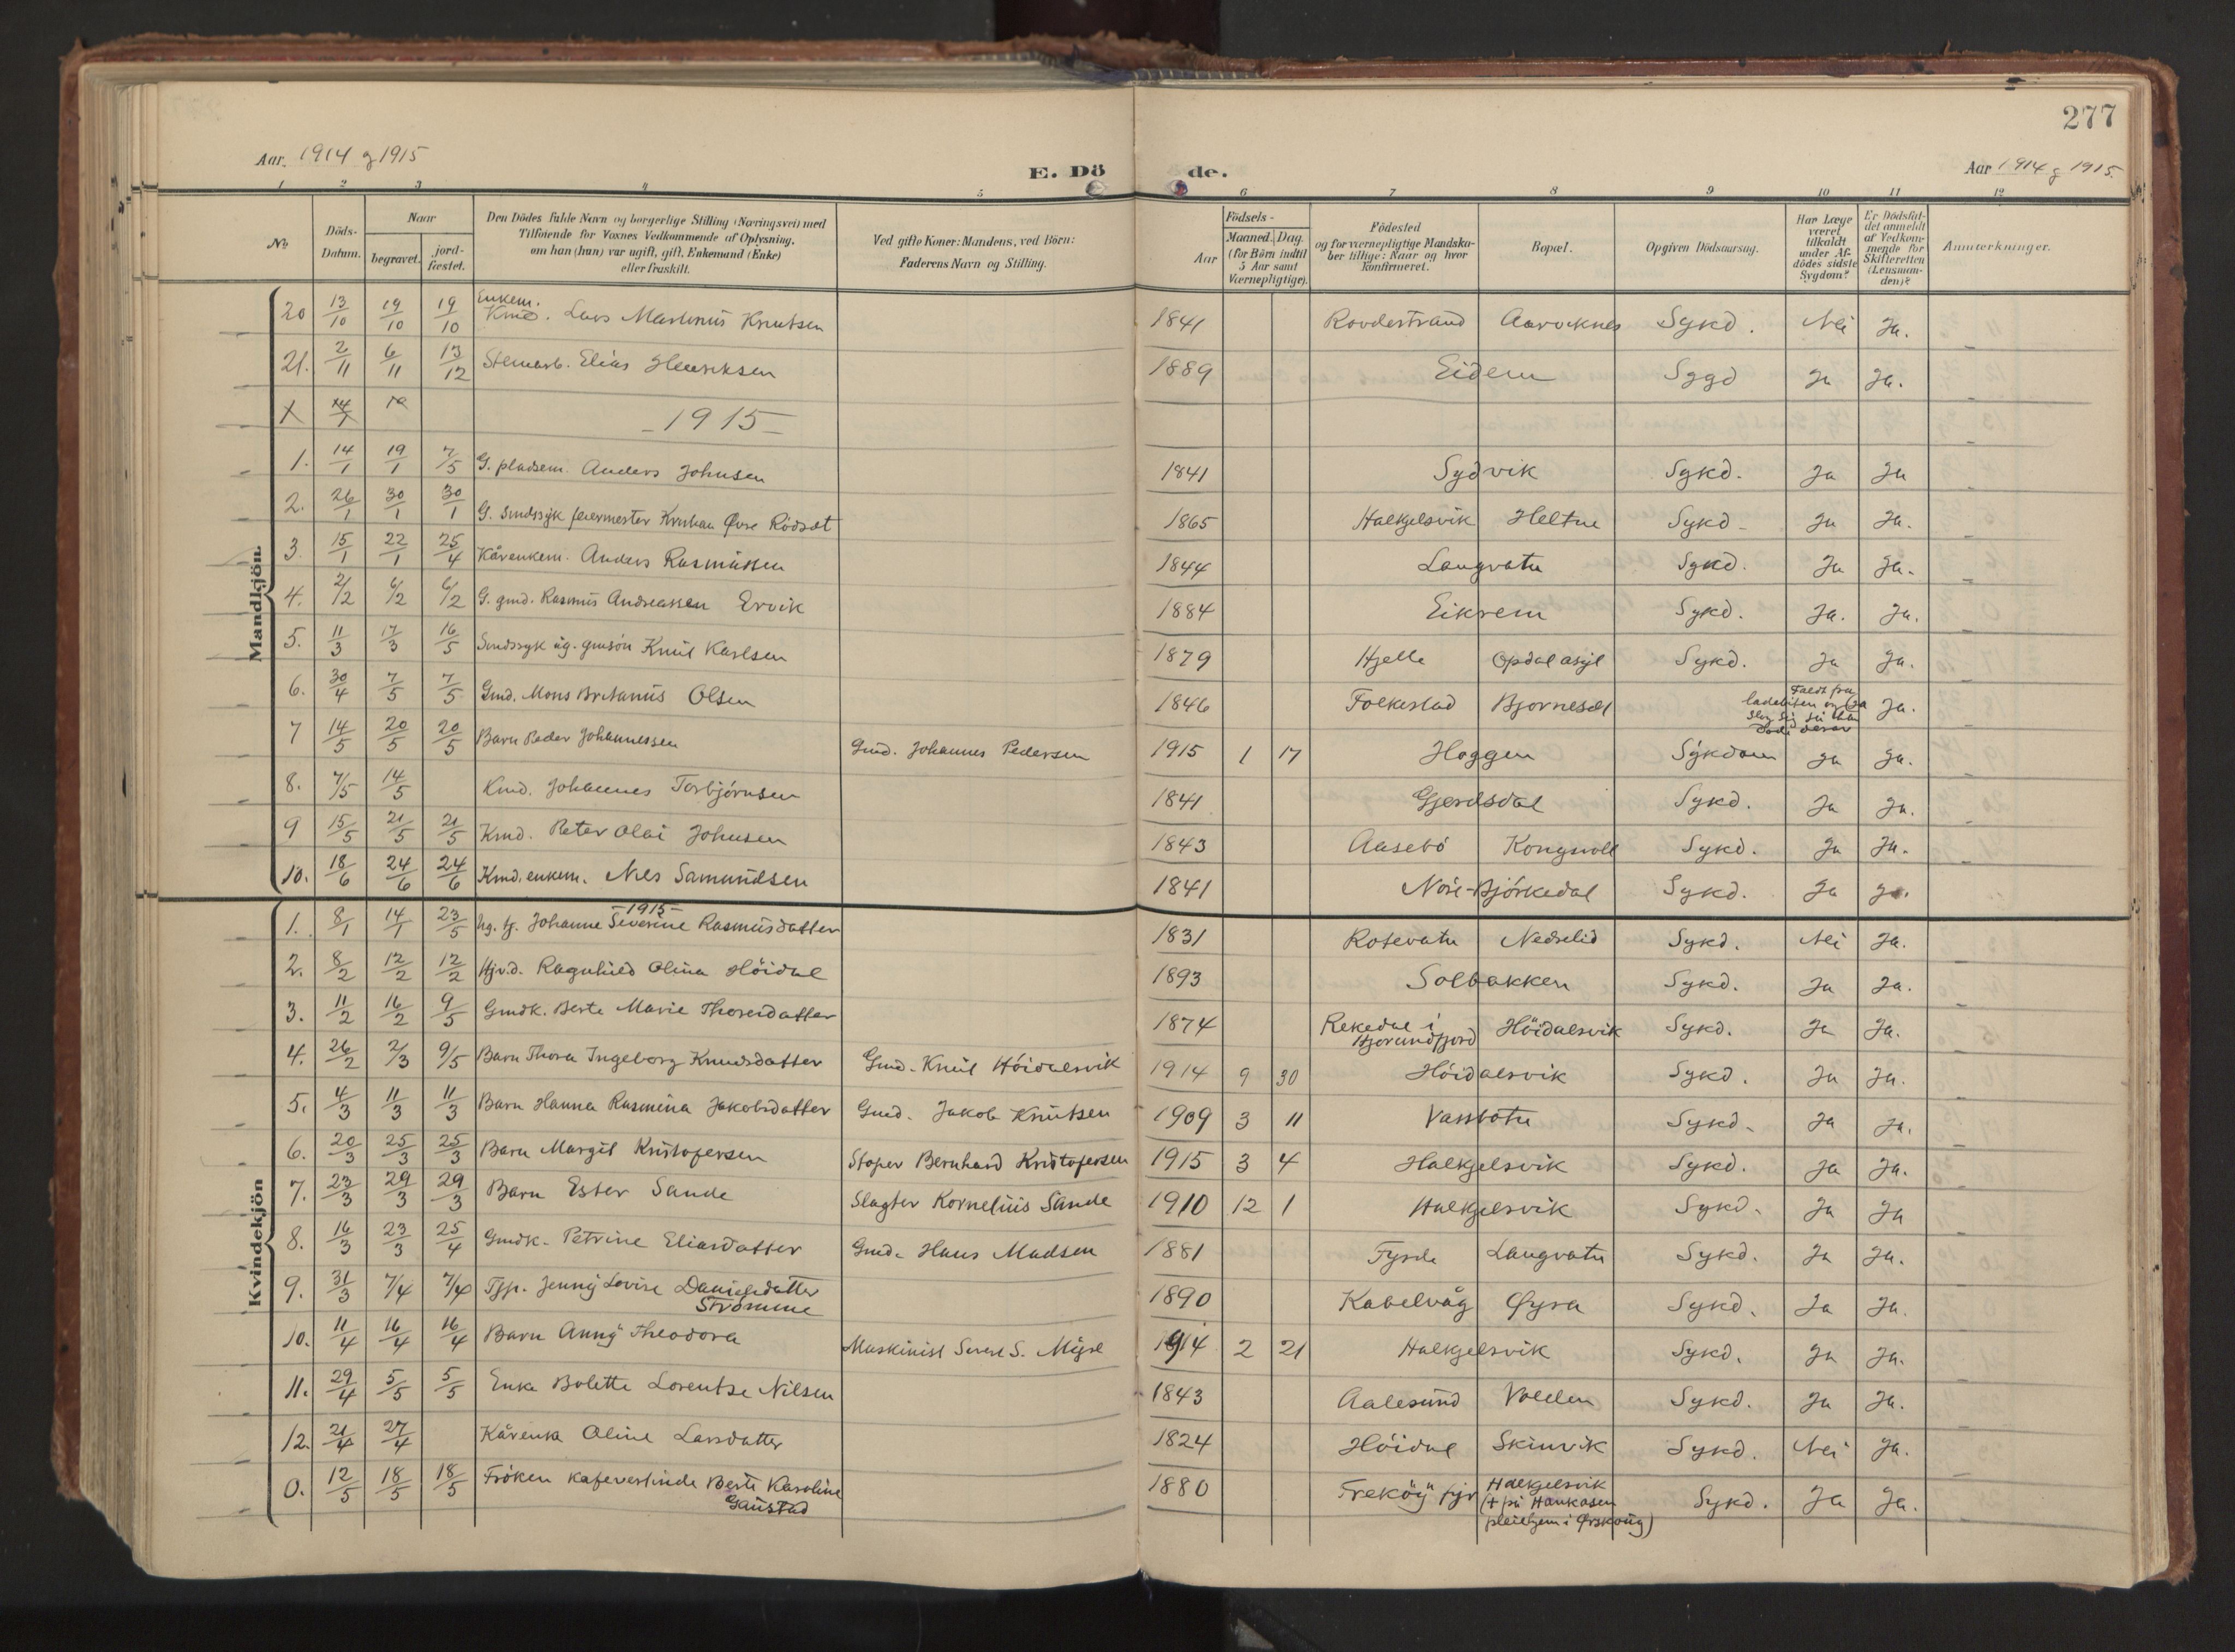 277
Aar. 1914 g 1915
E. Dö de.
Aar 1914 g 1915.
1 2 3 4 5 6 7 8 9 10 11 12
No
Döds-Datum.
Naar
begravet.
jord-fæstet.
Den Dödes fulde Navn og borgerlige Stilling (Næringsvei) med
Tilföiende for Voxnes Vedkommende af Oplysning,
om han (hun) var ugift, gift, Enkemand (Enke)
eller fraskilt.
Ved gifte Koner: Mandens, ved Börn:
Faderens Navn og Stilling.
Födsels-
Aar
Maaned. Dag
(for Börn indtil
5 Aar samt
Værnepligtige).
Födested
og for værnepligtige Mandska-
ber tillige: Naar og hvor
konfirmeret.
Bopæl.
Opgiven Dödsaarsag.
Har Læge
været
tilkaldt
under Af-
dödes sidste
Sygdom?
Er Dödsfal-
det anmeldt
af Vedkom-
mende for
Skifteretten
(Lensman-
den)?
Anmærkninger.
Mandkjön.
20 13/10 19/10 19/10 Enkem. Kmd. Lars Martinus Knutsen 1841 Rovdestrand Aarviknes Sykd. Nei Ja.
21. 2/11 6/11 13/12 Stenarb. Elias Henriksen 1889 Eidem Sygd Ja Ja.
X 14/1 19
– 1915 –
1. 14/1 19/1 7/5 G. pladsem. Anders Johnsen 1841 Sydvik Sykd. Ja Ja
2. 26/1 30/1 30/1 G. sindssyk feiermester Øvre Rödset 1865 Halkjelsvik Heltne Sykd- Ja Ja.
3. 15/1 22/1 25/4 Kårenkem. Anders Rasmussen 1844 Langvatn Sykd. Ja Ja.
4. 2/2 6/2 6/2 G. gmd. Rasmus Andreassen Ervik 1884 Eikrem Sykd. Ja. Ja.
5. 11/3 17/3 16/5 Sindssyk ug. gmsön Knut Karlsen 1879 Hjelle Opdal asyl Sykd. Ja Ja.
6. 30/4 7/5 7/5 Gmd. Mons Britanus Olsen 1846 Folkestad Bjørneset Faldt fra Ja Ja.
7 14/5 20/5 20/5 Barn Peder Johannessen Gmd. Johannes Pedersen 1915 1 17 Haggen Sykdom Ja Ja.
8. 7/5 14/5 Kmd. Johannes Torbjørnsen 1841 Gjerdsdal Sykd. Ja Ja.
9 15/5 21/5 21/5 Kmd. Peter Olai Johnsen 1843 Aasebö Kongsvoll Sykd. Ja Ja.
10. 18/6 24/6 24/6 Kmd. enkem. Nils Samundsen 1841 Nore-Bjórkedal Sykd. Ja Ja.
Kvindekjön
– 1915 –
1. 8/1 14/1 23/5 Ug. tj. Johanne Severine Rasmusdatter 1831 Rotevatn Nedrelid Sykd. Nei Ja.
2. 8/2 12/2 12/2 Hjv.d. Ragnhild Olina Höidal 1893 Solbakken Sykd. Ja Ja.
3. 11/2 16/2 9/5 Gmdk. Berte Marie Thoresdatter 1874 Rekedal i Hjorundfjord Höidalsvik Sykd. Ja Ja.
4. 26/2 2/3 9/5 Barn Thora Ingeborg Knudsdatter Gmd. Knut Höidalsvik 1914 9 30 Höidalsvik Sykd. Ja Ja.
5. 4/3 11/3 11/3 Barn Hanna Rasmina Jakobsdatter Gmd. Jakob Knutsen 1909 3 11 Vassbotn Sykd. Ja Ja.
6. 20/3 25/3 25/3 Barn Margit Kristofersen Støper Bernhard Kristofersen 1915 3 4 Halkjelsvik Sykd. Ja Ja.
7. 23/3 29/3 29/3 Barn Ester Sande Slagter Kornelius Sande 1910 12 1 Halkjelsvik Sykd. Ja Ja
8. 16/3 23/3 25/4 Gmdk. Petrine Eliasdatter Gmd. Hans Madsen 1881 Fyrde Langvatn Sykd. Ja Ja.
9. 31/3 7/4 7/4 Tjp. Jenny Lovise Danielsdatter Strömme 1890 Kabelvåg Øyra Sykd. Ja Ja.
10. 11/4 16/4 16/4 Barn Anny Theodora Maskinist S. Myre 1914 2 21 Halkjelsvik Sykd. Ja Ja.
11. 29/4 5/5 5/5 Enke Bolette Lorentse Nilsen 1843 Aalesund Volden Sykd. Ja Ja.
12. 21/4 27/4 Kårenke Oline Larsdatter 1824 Höidal Skinvik Sykd. Nei Ja.
0. 12/5 18/5 18/5 Fröken kafevertinde Berte Karoline Gaustad 1880 Freköy Halkjelsvik († på Haukåsen pleiehjem i Ørskoug) Sykd. Ja Ja.